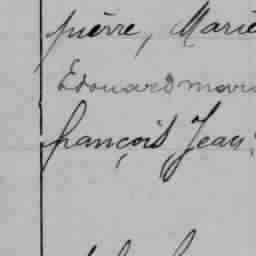 pièrre, Marie
Edouard mari
françois, Jean